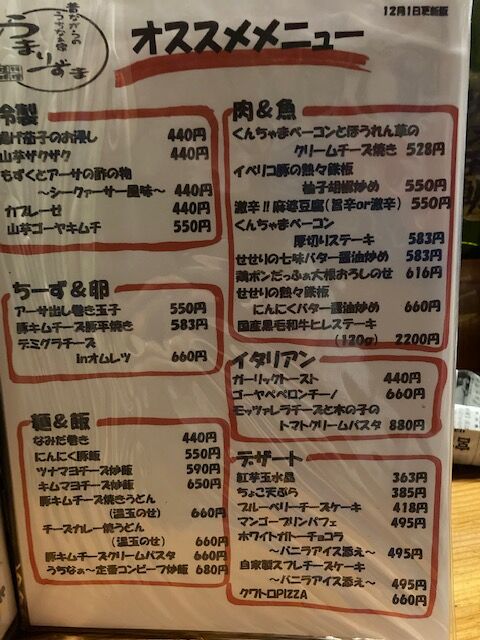 昔ながらの
うちなぁ家
うまりずま
オススメメニュー
12月1日更新版
冷製
揚げ茄子のお浸し 440円
山芋ザクザク 440円
もずくとアーサの酢の物
～シークァーサー風味～ 440円
カプレーゼ 440円
山芋ゴーヤキムチ 550円
ちーず&卵
アーサ出し巻き玉子 550円
豚キムチーズ豚平焼き 583円
デミグラチーズ
inオムレツ 660円
麺&飯
なみだ巻き 440円
にんにく豚飯 550円
ツナマヨチーズ炒飯 590円
キムマヨチーズ炒飯 650円
豚キムチーズ焼きうどん
(温玉のせ) 660円
チーズカレー焼うどん
(温玉のせ) 660円
豚キムチーズクリームパスタ 660円
うちなぁ～定番コンビーフ炒飯 680円
肉&魚
くんちゃまベーコンとほうれん草の
クリームチーズ焼き 528円
イベリコ豚の熱々鉄板
柚子胡椒炒め 550円
激辛!!麻婆豆腐(旨辛or激辛) 550円
くんちゃまベーコン
厚切りステーキ 583円
せせりの七味バター醤油炒め 583円
鶏ポンだっふぁ大根おろしのせ 616円
せせりの熱々鉄板
にんにくバター醤油炒め 660円
国産黒毛和牛ヒレステーキ
(120g) 2200円
イタリアン
ガーリックトースト 440円
ゴーヤペペロンチーノ 660円
モッツァレラチーズと木の子の
トマトクリームパスタ 880円
デザート
紅芋玉水晶 363円
ちょこ天ぷら 385円
ブルーベリーチーズケーキ 418円
マンゴープリンパフェ 495円
ホワイトガトーチョコラ
～バニラアイス添え～ 495円
自家製スフレチーズケーキ
～バニラアイス添え～ 495円
クワトロPIZZA 660円